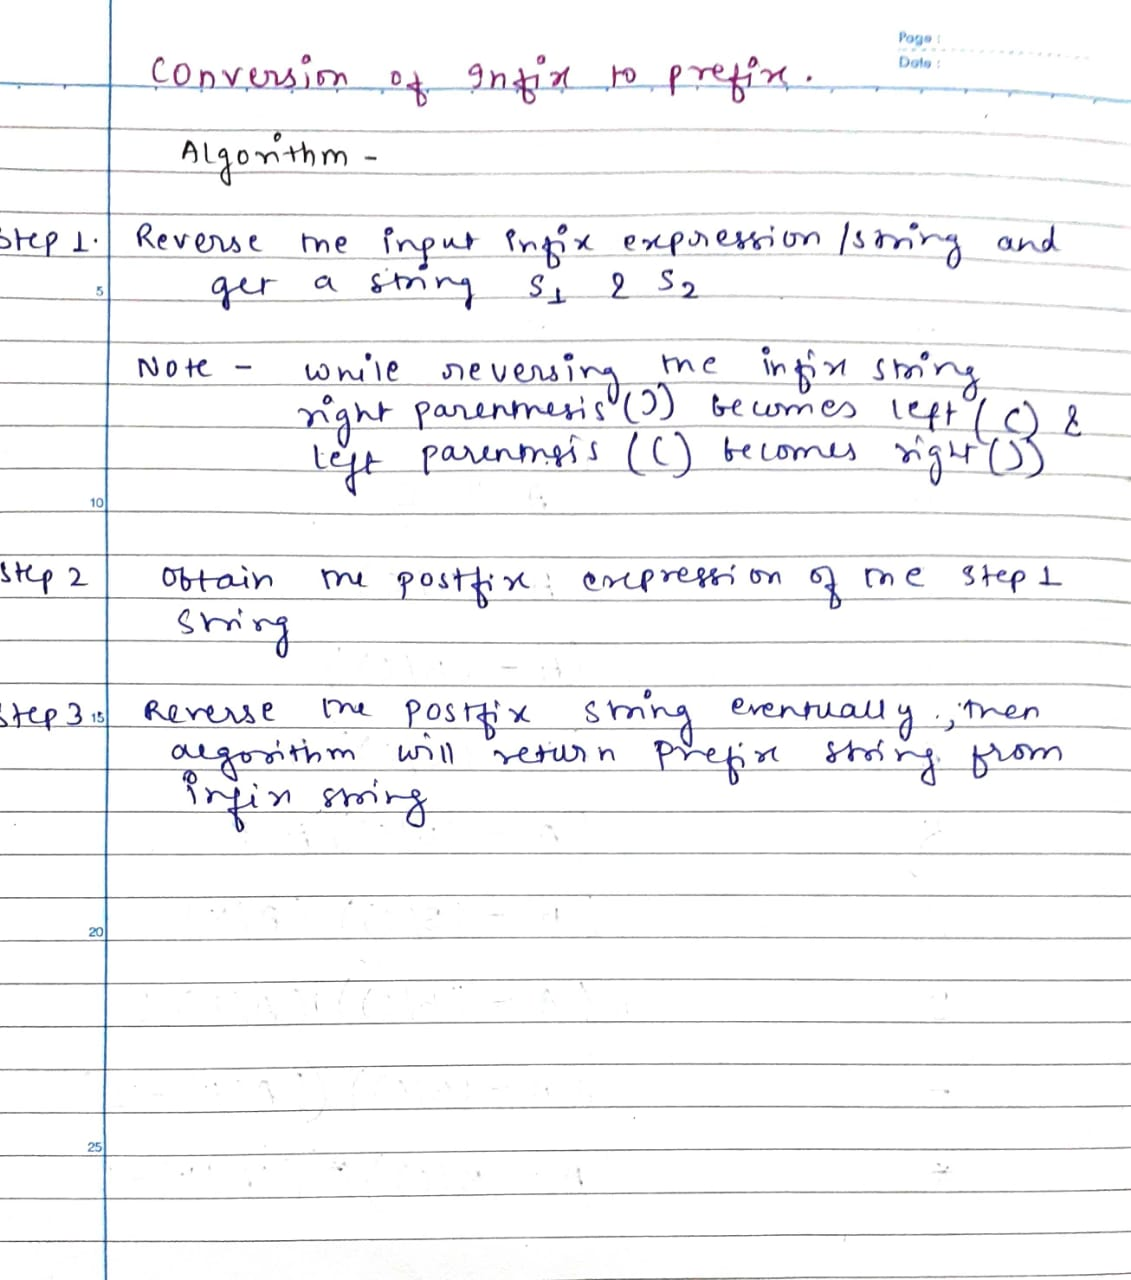 Page :
Date :
Conversion of Infix to prefix.
Algorithm -
Step 1. Reverse the input infix expression /string and
get a string S1 & S2
5
Note - while reversing the infix string
right parenthesis ()) becomes left (() &
left parenthsis (() becomes right ())
10
Step 2 Obtain the postfix : expression of the step 1
string
Step 3 15 Reverse the postfix string eventually ., then
algorithm will return prefix string from
infix string
20
25